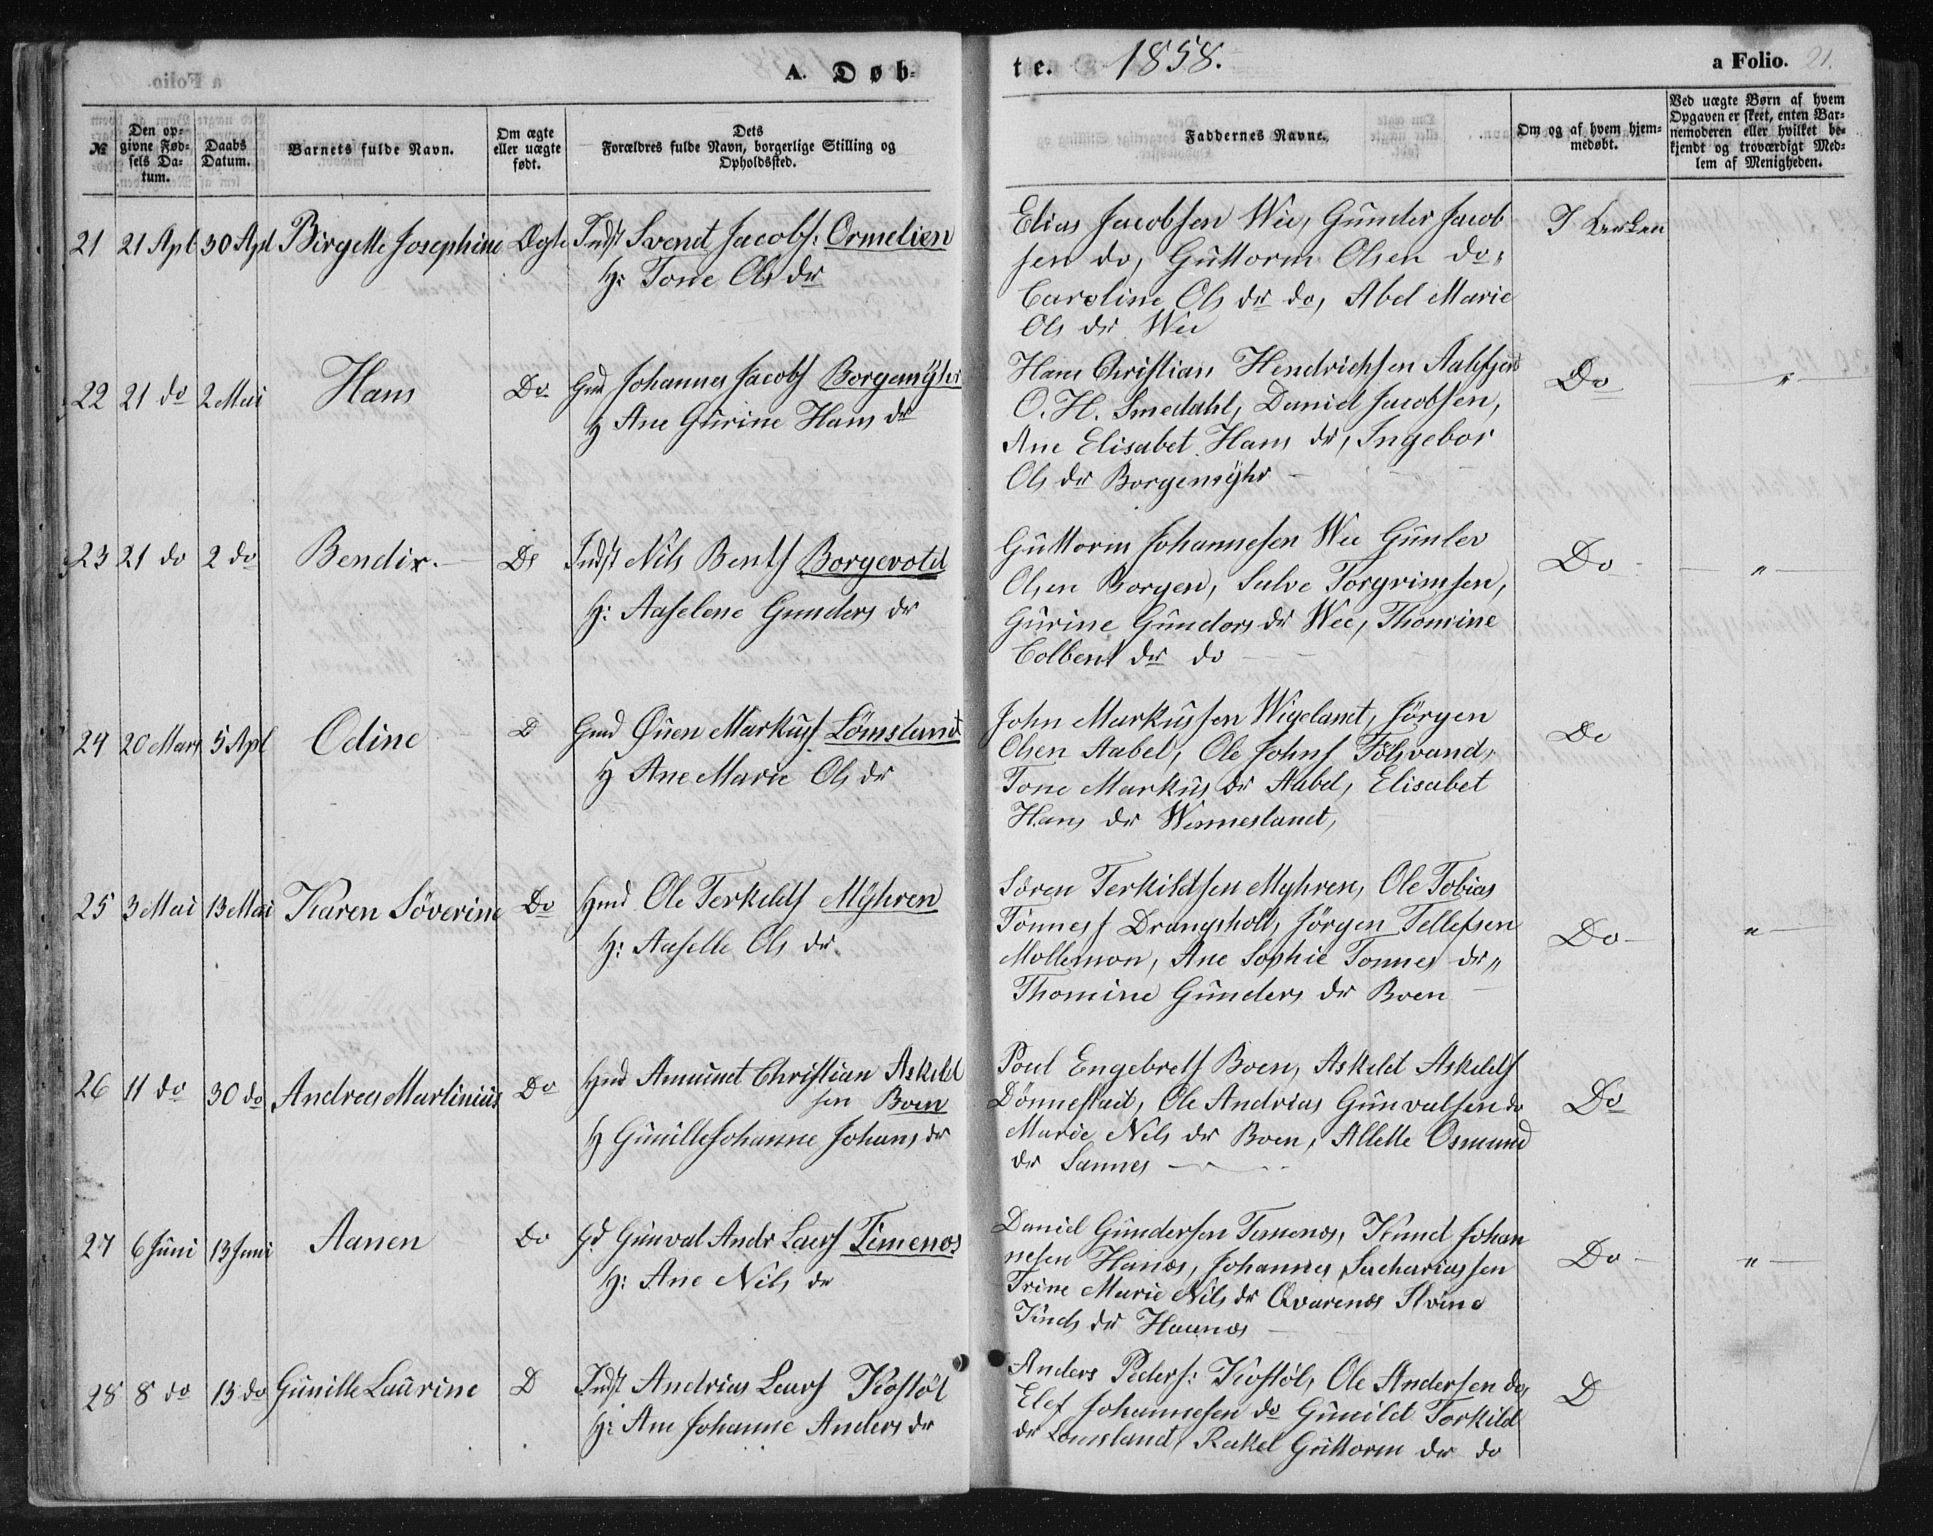 A. Døb-
te. 1858.
a Folio. 21.
№
Den op-
givne Fød-
sels Da-
tum.
Daabs
Datum.
Barnets fulde Navn.
Om ægte
eller uægte
født.
Dets
Forældres fulde Navn, borgerlige Stilling og
Opholdssted.
Faddernes Navne.
Om og af hvem hjem-
medøbt.
Ved uægte Børn af hvem
Opgaven er skeet, enten Bar-
nemoderen eller hvilket be-
kjendt og troværdigt Med-
lem af Menigheden.
21 21 Apl 30 Apl Birgette Josephine Ægte Indst Svend Jacobs: Ormelien
H: Tone Ols dr
Elias Jacobsen Wee, Gunder Jacob
sen do, Guttorm Olsen do,
Caroline Ols dr do, Abel Marie
Ols dr Wee
I Kirken
22 21 do 2 Mai Hans Do Gmd Johannes Jacobs Borgemÿhr
H Ane Gurine Hans dr
Hans Christian Hendrichsen Aalefjær
O. H. Smedahl, Daniel Jacobsen,
Ane Elisabet Hans dr, Ingebor
Ols dr Borgemÿhr
Do "
23 21 do 2 do Bendix. Do Indst Nils Bents Borgevold
H: Aaselene Gunders dr
Guttorm Johannesen Wee Gunler
Olsen Borgen, Salve Torgrimsen,
Gurine Gundors dr Wee, Thomine
Colbens dr do
Do "
24 20 Mars 5 Apl Odine D Gmd Ouen Markus Lömsland
H Ane Marie Ols dr
John Markussen Wigeland, Jörgen
Olsen Aabel, Ole Johns Fölsvand,
Tone Markus dr Aabel, Elisabet
Hans dr Wemesland,
Do
25 3 Mai 13 Mai Karen Söverine Do Hmd Ole Terkelds Mÿhren
H: Aaselle Ols dr.
Sören Terkildsen Myhren, Ole Tobias
Tönness Drangsholt, Jörgen Tellefsen
Mollemon, Ane Sophie Tonnes dr "
Thomine Gunders dr Boen
Do "
26 11 do 30 do Andreas Martinius Do Hmd Amund Christian Askeld
sen Boen
H Gunille Johanne Johans dr
Poul Engebrets Boen, Askeld Askelds
Dönnestad, Ole Andrias Gunvalsen do
Marie Nils dr Boen, Allette Osmund
dr Sannes
Do
27 6 Juni 13 Juni Aanen Do Gd Gunval Andr Laurs Timenos
H: Ane Nils dr
Daniel Gundersen Temenos, Knud Johan
nesen Hanæs, Johannes Sachariassen
Trine Marie Nils dr Qvarenæs
Knuds dr Haanæs
Do "
28 8 do 13 do Gunille Laurine D Indst Andrias Laurs Kostöl
H: Ane Johanne Anders dr
Anders Peders: Kostöl, Ole Andersen do,
Elef Johannesen do Gunild Torkild
dr Lömsland, Rakel Guttorm dr do
D